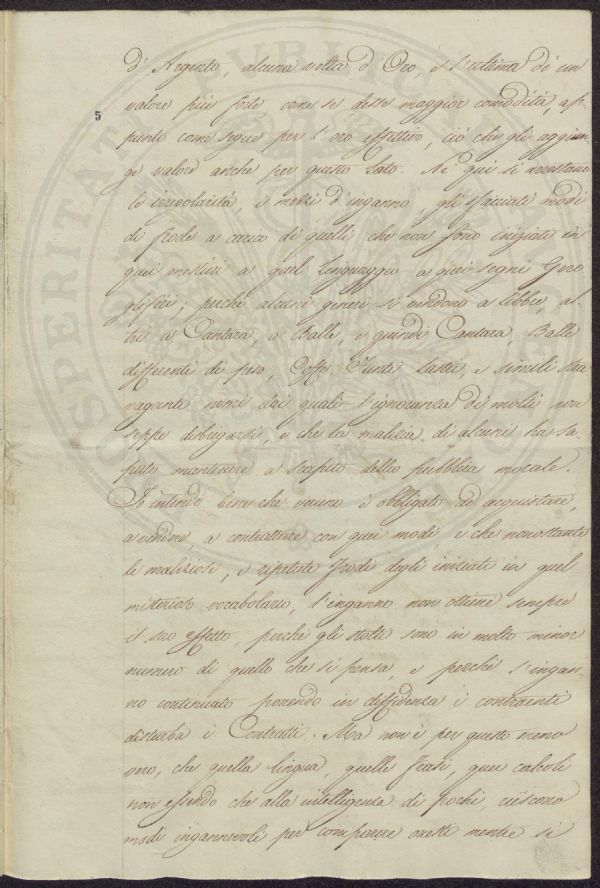 d'Argento, alcuna volta d'Oro, e l'ultima di un
valore più forte, come se desse maggior comodità, ap-
5
punto come segue per l'oro effettivo, ciò che gli aggiun-
ge valore anche per questo lato. Nè qui si arrestano
le irregolarità, i mezzi d'inganno gli sfacciati modi
di frode a carico di quelli che non sono iniziati in
quei misteri a quel linguaggio a quei segni Gero-
glifici; perchè alcuni generi si vendono a libbre, al-
tri a Cantara, a Balle, e quindi Cantara, Balle
differenti di peso, Coffe, Punti, e simili stra
vaganti nomi dai quali l'ignoranza di molti non
seppe disbrigarsi, e che la malizia di alcuni ha sa-
puto mantenere a scapito della pubblica morale.
Io intendo bene che veruno è obbligato ad acquistare,
a vendere, a contrattare con quei modi e che nonostante
le maliziose, e ripetute frodi degli iniziati in quel
misterioso vocabolario, l'inganno non ottiene sempre
il suo effetto, perchè gli stolti sono in molto minor
numero di quello che si pensa, e perchè l'ingan-
no continuato ponendo in diffidenza i contraenti
disturba i Contratti. Ma non è per questo meno
vero, che quella lingua, quelle frasi, quei calcoli
non essendo che alla intelligenza di pochi, riescono
modi ingannevoli per comparire onesti mentre si